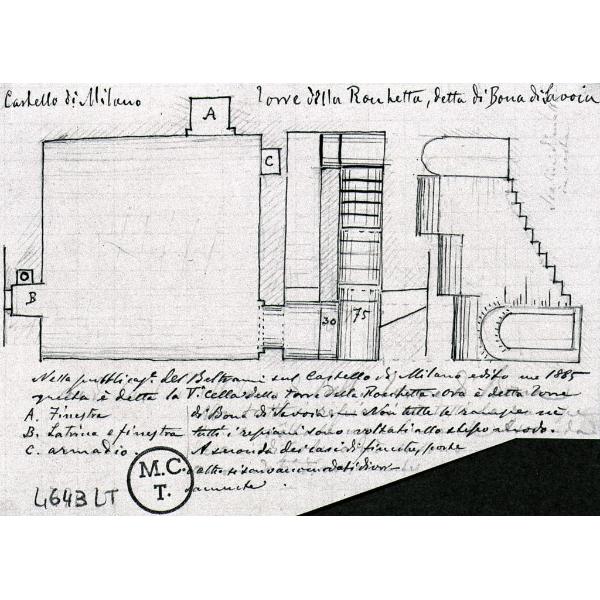 Castello di Milano
Torre della Rocchetta, detta di Bona di Savoia
A
C
B
30
75
Nella pubblicaz. del Beltrami sul Castello di Milano edito nel 1885
questa è detta la Cella della torre della Rocchetta. Ora è detta Torre
A. Finestra
di Bona di Savoia. Non tutte le
B. Latrina e finestra
tutti i ripiani sono voltati allo stesso modo.
C. armadio.
A seconda dei casi di finestre, porte
M.C.
T.
4643 LT